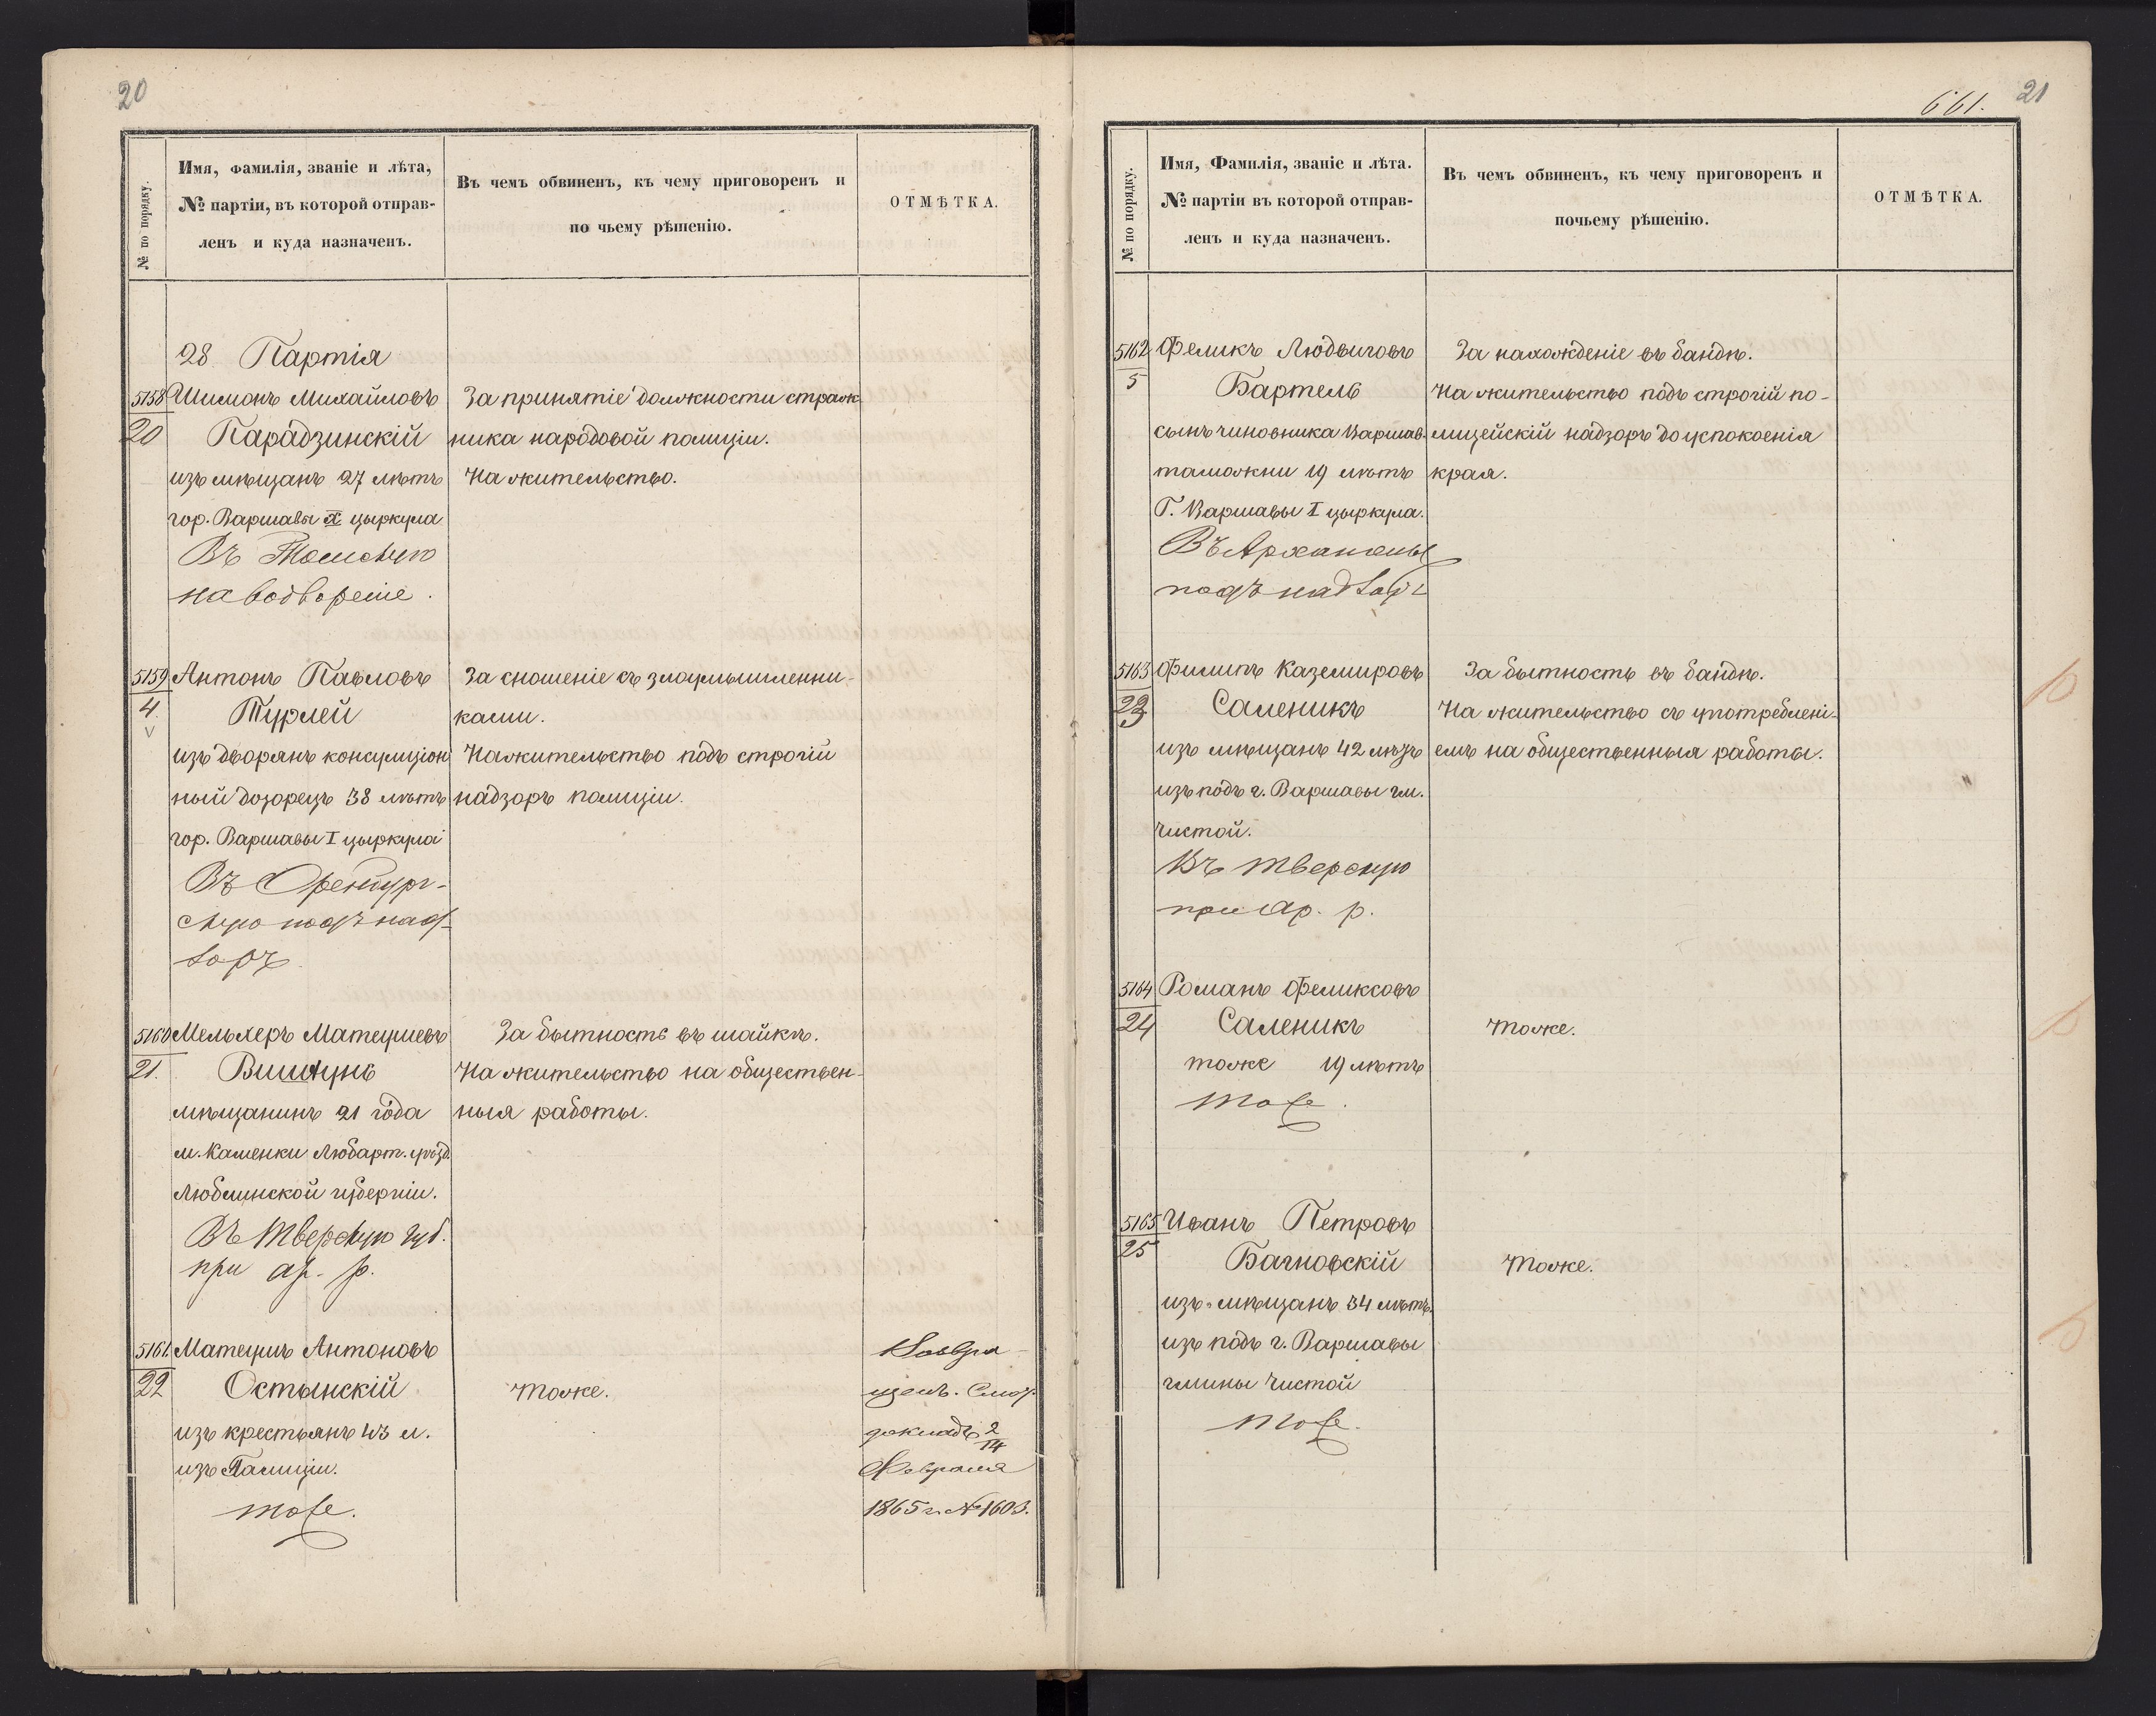 20
№ по порядку.
Имя, фамилія, званіе и лѣта,
№ партіи, въ которой отправ-
ленъ и куда назначенъ.
Въ чемъ обвиненъ, къ чему приговоренъ и
по чьему рѣшенію.
ОТМѢТКА.
28 Партія
5158
20
Шимонъ Михайловъ
Парадзинскій
изъ мѣщанъ 27 лѣтъ
гор. Варшавы X цыркула
Въ Томскую
на водвореніе.
За принятіе должности страж-
ника народовой полиціи.
На жительство.
5159
4.
Антонъ Павловъ
Турлей
изъ дворянъ консумціон
ный дозорецъ 38 лѣтъ
гор. Варшавы I цыркула
Въ Оренбург-
скую подъ над-
зоръ
За сношеніе съ злоумышленни-
ками.
На жительство подъ строгій
надзоръ полиціи.
5160
21.
Мельхеръ Матеушевъ
мѣщанинъ 21 года
м. Каменки Любарт. уѣзд.
Люблинской губерніи.
Въ Тверскую губ.
при ар. р.
За бытность въ шайкѣ.
На жительство на обществен-
ныя работы.
5161
22
Матеушъ Антоновъ
Остынскій
изъ крестьянъ 43 л.
изъ Галиціи.
тоже.
Тоже.
Возвра-
щенъ. Смот.
докладъ 2/14
Февраля
1865 г. № 1603.
661. 21
№ по порядку.
Имя, Фамилія, званіе и лѣта.
№ партіи въ которой отправ-
ленъ и куда назначенъ.
Въ чемъ обвиненъ, къ чему приговоренъ и
почьему рѣшенію.
ОТМѢТКА.
5162
5
Феликъ Людвиговъ
Бартель
сынъ чиновника Варшав.
таможни 19 лѣтъ
Г. Варшавы I цыркула.
Въ Архангел
подъ надзоръ
За нахожденіе въ бандѣ.
На жительство подъ строгій по-
лицейскій надзоръ до успокоенія
края.
5163
23
Филипъ Каземировъ
Саленикъ
изъ мѣщанъ 42 лѣтъ
изъ подъ г. Варшавы гм.
Чистой.
Въ Тверскую
при ар. р.
За бытность въ бандѣ.
На жительство съ употреблені-
емъ на общественныя работы.
5164
24
Романъ Феликсовъ
Саленикъ
тоже 19 лѣтъ
Тоже.
Тоже.
5165
25
Иванъ Петровъ
Бачновскій
изъ мѣщанъ 34 лѣтъ.
изъ подъ г. Варшавы
гмины Чистой
Тоже.
Тоже.